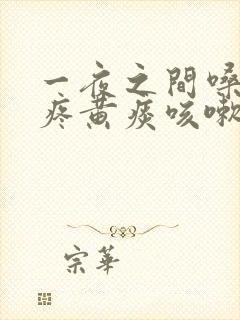 一夜之間嗓
疼黄痰咳嗽
宗華